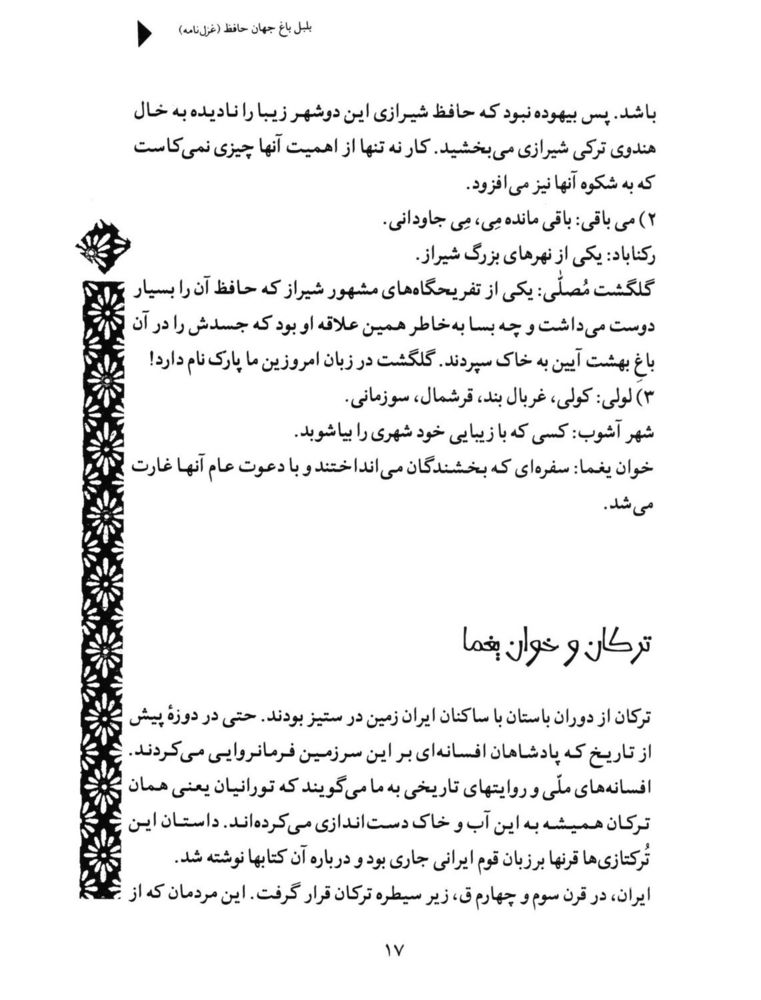 بلبل باغ جهان حافظ (غزل‌نامه)
باشد. پس بیهوده نبود که حافظ شیرازی این دوشهر زیبا را نادیده به خال
هندوی ترکی شیرازی می‌بخشید. کار نه تنها از اهمیت آنها چیزی نمی‌کاست
که به شکوه آنها نیز می‌افزود.
۲) می باقی: باقی مانده مِی، مِی جاودانی.
رکناباد: یکی از نهرهای بزرگ شیراز.
گلگشت مُصلّی: یکی از تفریحگاه‌های مشهور شیراز که حافظ آن را بسیار
دوست می‌داشت و چه بسا به‌خاطر همین علاقه او بود که جسدش را در آن
باغِ بهشت آیین به خاک سپردند. گلگشت در زبان امروزین ما پارک نام دارد!
۳) لولی: کولی، غربال بند، قرشمال، سوزمانی.
شهر آشوب: کسی که با زیبایی خود شهری را بیاشوبد.
خوان یغما: سفره‌ای که بخشندگان می‌انداختند و با دعوت عام آنها غارت
می‌شد.
ترکان و خوان یغما
ترکان از دوران باستان با ساکنان ایران زمین در ستیز بودند. حتی در دوزهٔ پیش
از تاریخ که پادشاهان افسانه‌ای بر این سرزمین فرمانروایی می‌کردند.
افسانه‌های ملّی و روایتهای تاریخی به ما می‌گویند که تورانیان یعنی همان
ترکان همیشه به این آب و خاک دست‌اندازی می‌کرده‌اند. داستان این
تُرکتازی‌ها قرنها بر زبان قوم ایرانی جاری بود و درباره آن کتابها نوشته شد.
ایران، در قرن سوم و چهارم ق، زیر سیطره ترکان قرار گرفت. این مردمان که از
۱۷